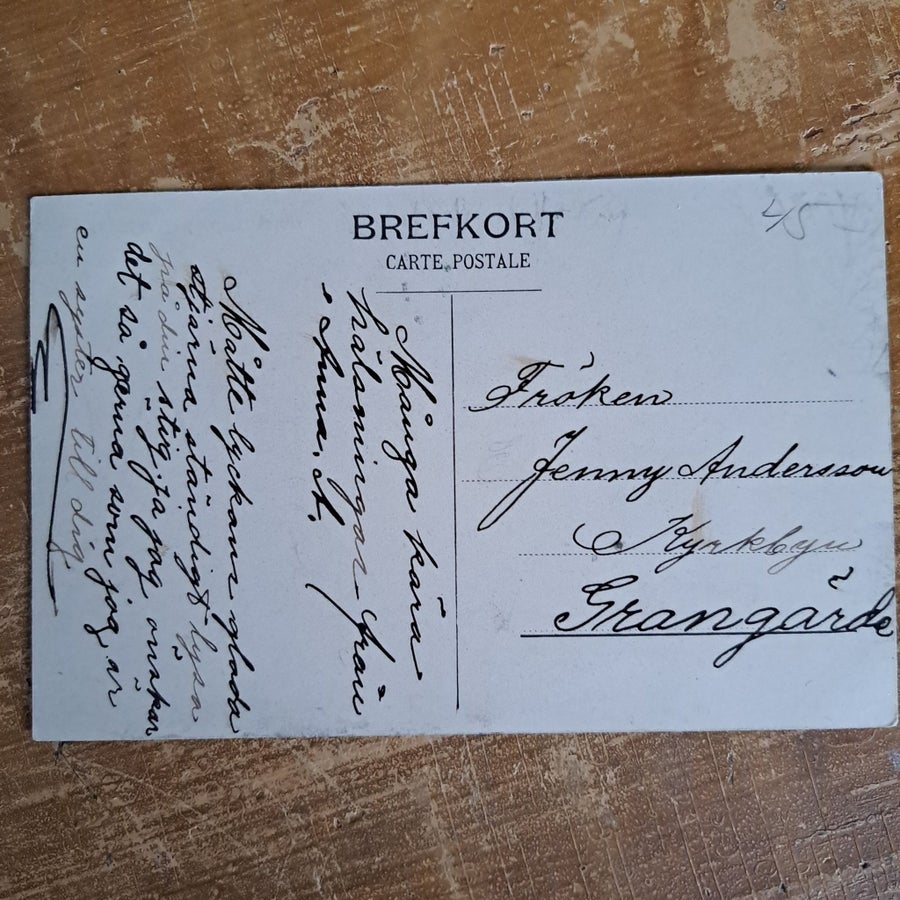 BREFKORT
CARTE POSTALE
2/5
Många kära
hälsningar från
Anna. A.
Måtte lyckans glada
stjärna ständigt lysa
på din stig ja jag önskar
det så gerna som jag är
en syster till dig.
Fröken
Jenny Andersson
Kyrkbyn
Grangärde